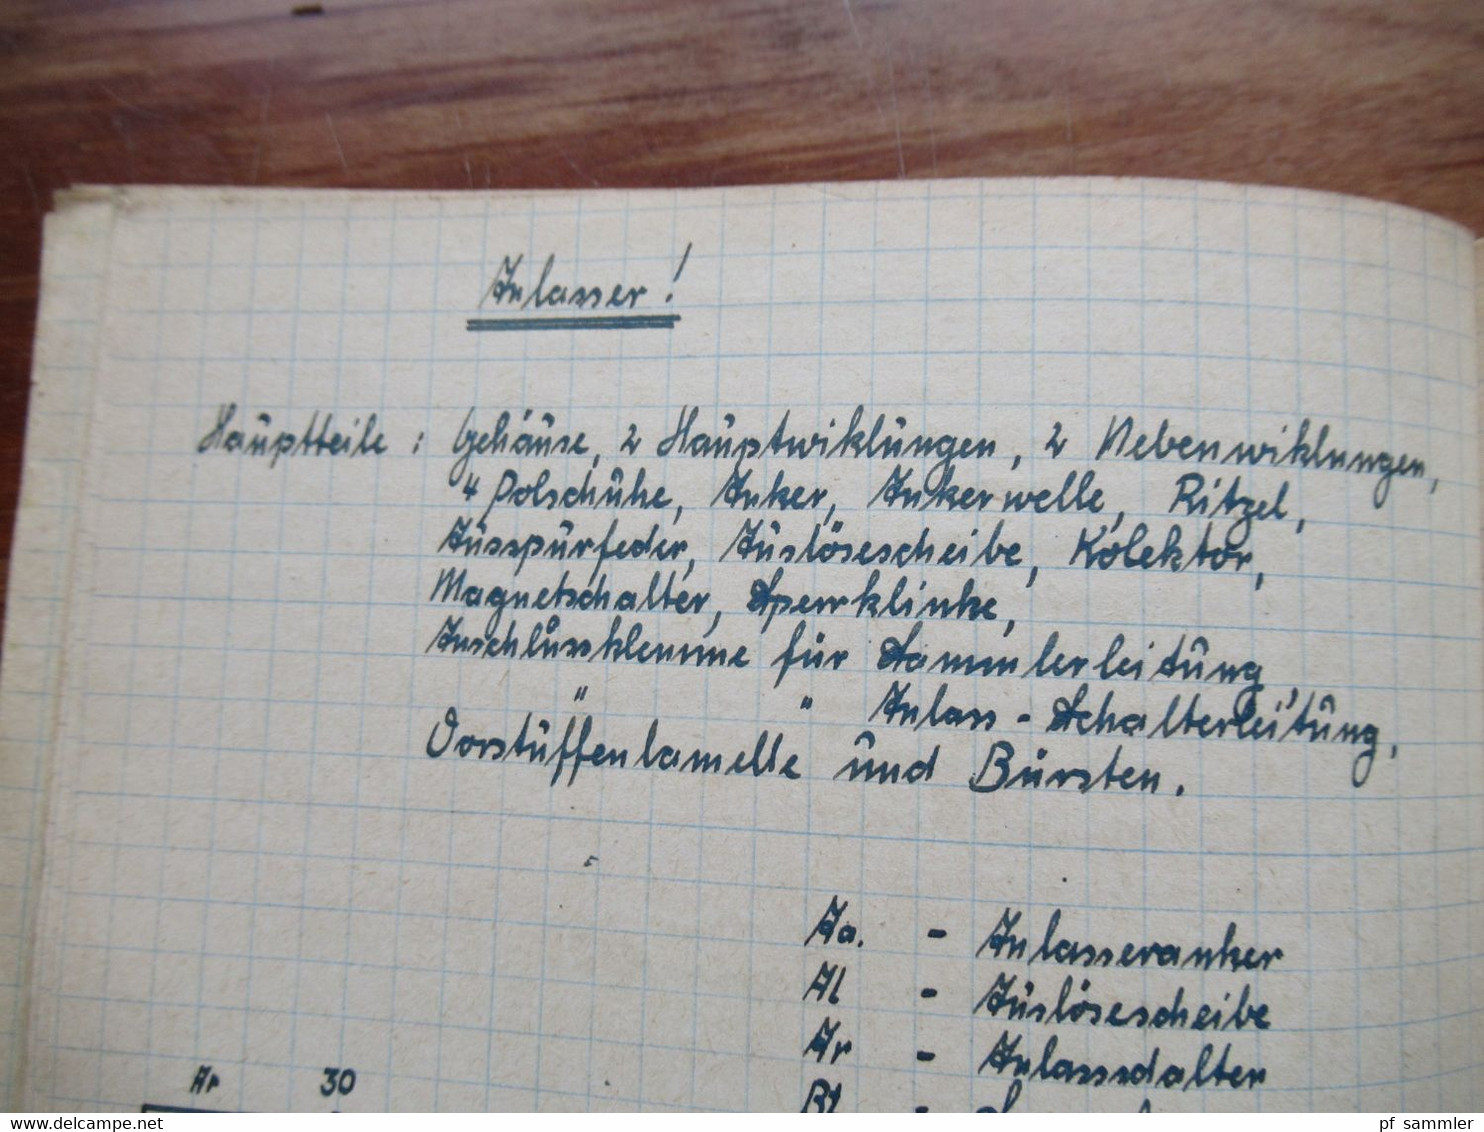 Anlasser!
Haŭptteile : Gehäuse, 2 Haŭptwiklŭngen, 2 Nebenwiklungen,
4 Polschŭhe, Anker, Ankerwelle, Ritzel,
Aŭsspŭrfeder, Aŭslösescheibe, Kolektor,
Magnetschalter, Sperrklinke,
Anschlŭssklemme für Sammlerleitŭng,
" " Anlass-Schalterleitŭng,
Vorstŭffenlamelle ŭnd Bürsten.
Aa. - Anlasseranker
Al - Aŭslösescheibe
Ar - Anlassschalter
Ar 30
delcampe.net
pf_sammler